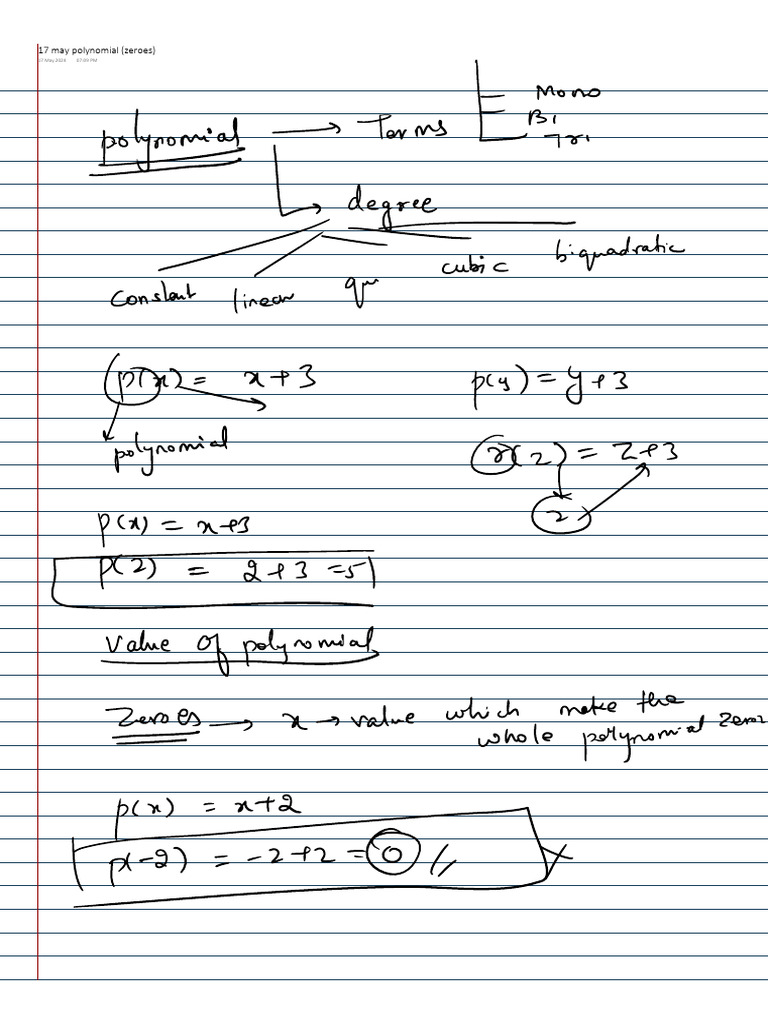 17 may polynomial (zeroes)
17 May 2023 07:09 PM
Mono
polynomial → Terms Bi
Tri
degree
constant linear qu cubic biquadratic
p(x) = x+3 p(y) = y+3
polynomial r(z) = z+3
z
p(x) = x+3
p(2) = 2+3 =5
Value of polynomial
Zeroes → x → value which make the
whole polynomial zero
p(x) = x+2
p(-2) = -2+2 = 0 //